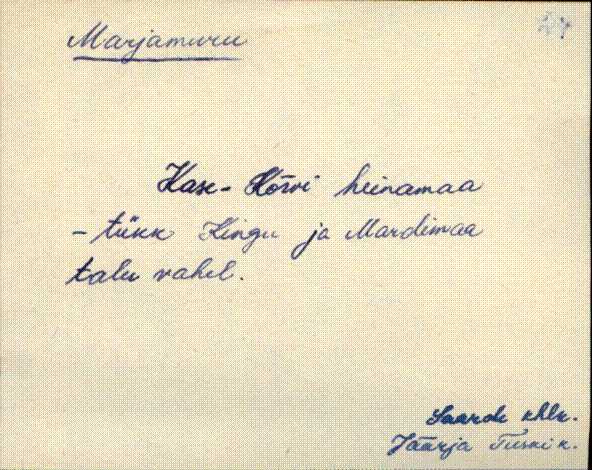 Marjamuru
Kase-Kõrvi heinamaa
-tükk Kingu ja Mardimaa
talu vahel.
Saarde khlk.
Jäärja